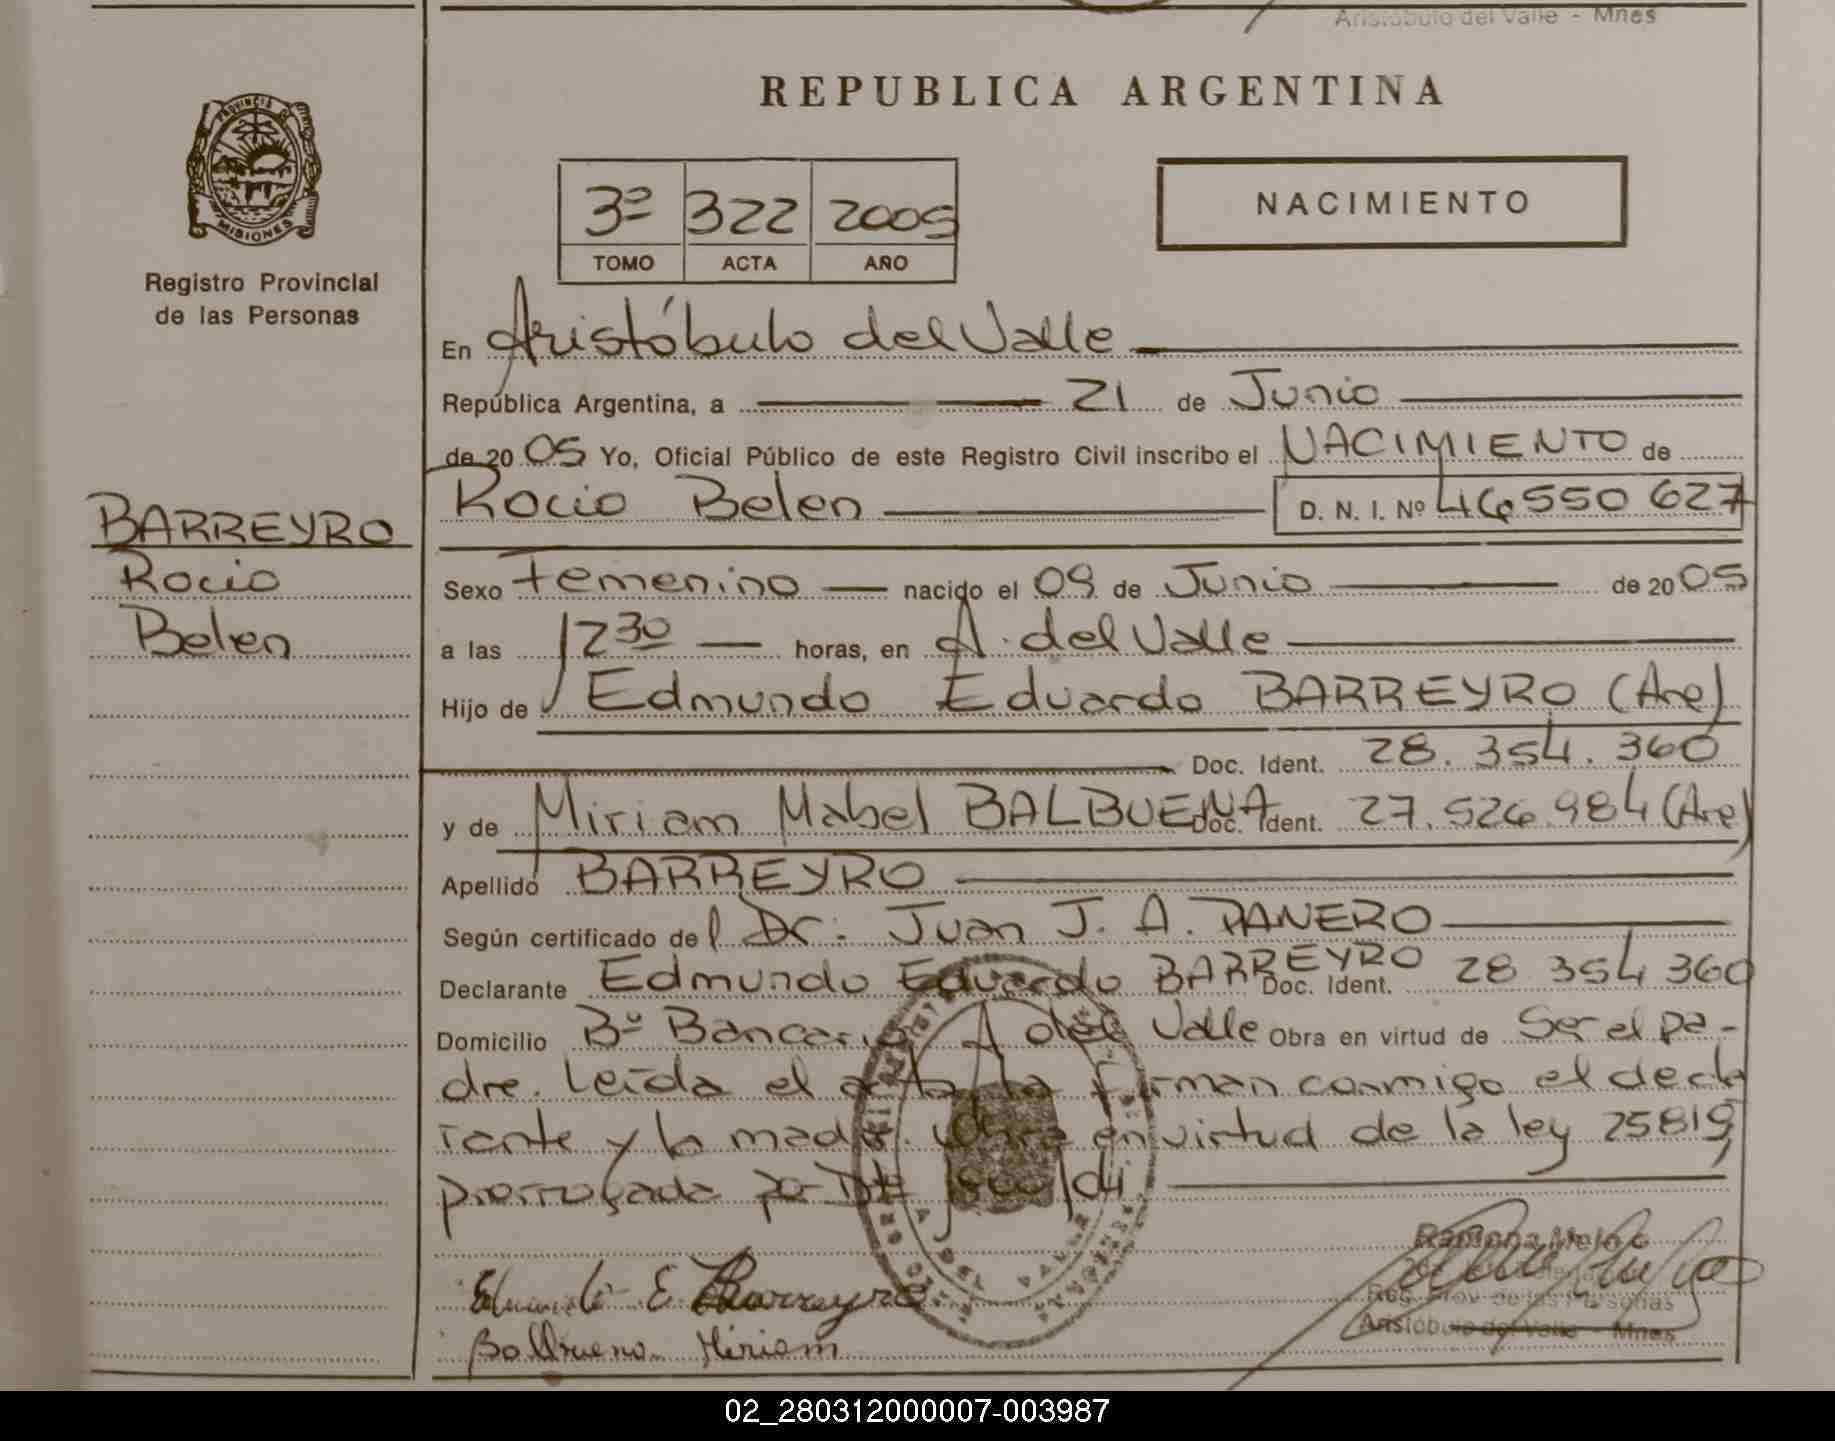 Aristóbulo del Valle - Mnes
REPUBLICA ARGENTINA
PROVINCIA DE
MISIONES
Registro Provincial
de las Personas
3º 322 2005
TOMO ACTA AÑO
NACIMIENTO
En Aristóbulo del Valle
República Argentina, a 21 de Junio
de 20 05 Yo, Oficial Público de este Registro Civil inscribo el NACIMIENTO de
Rocio Belen D. N. I. Nº 46 550 627
BARREYRO
Rocio
Belen
Sexo Femenino nacido el 09 de Junio de 20 05
a las 12 30 horas, en A. del Valle
Hijo de Edmundo Eduardo BARREYRO (Are)
Doc. Ident. 28. 354. 360
y de Miriam Mabel BALBUENA Doc. Ident. 27. 526 984 (Are)
Apellido BARREYRO
Según certificado del Dr. Juan J. A. PANERO
Declarante Edmundo Eduardo BARREYRO Doc. Ident. 28 354 360
Domicilio Bº Bancario A del Valle Obra en virtud de Ser el pa-
dre. Leída el acta la firman conmigo el decla
rante y la madre. Obra en virtud de la ley 25819
prorrogada por /04
E. Barreyro
Balbuena Miriam
Ramona
Reg. Prov. de las Personas
Aristóbulo del Valle - Mnes
02_280312000007-003987